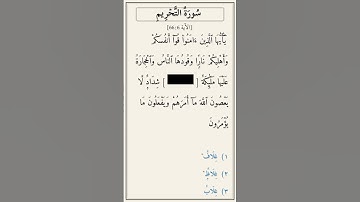 سُورَةُ التَّحْرِيمِ
[الآية 6:66]
يَٰٓأَيُّهَا ٱلَّذِينَ ءَامَنُوا۟ قُوٓا۟ أَنفُسَكُمْ
وَأَهْلِيكُمْ نَارًا وَقُودُهَا ٱلنَّاسُ وَٱلْحِجَارَةُ
عَلَيْهَا مَلَٰٓئِكَةٌ [ ] شِدَادٌ لَّا
يَعْصُونَ ٱللَّهَ مَآ أَمَرَهُمْ وَيَفْعَلُونَ مَا
يُؤْمَرُونَ
١) غِلَافٌ
٢) غِلَاظٌ
٣) غِلَابٌ